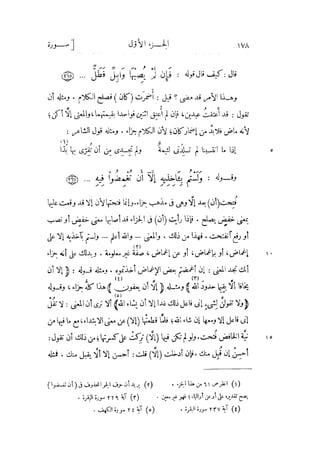 ١٧٨ الجزء الأول [ســورة
قال : كيف قال قوله : فَإِن لَّمْ يُصِبْهَا وَابِلٌ فَطَلٌّ ... (٢٦٥)
وهذا الأمر قد مضى ؟ قيل : أضمرت (كان) فصلح الكلام . ومثله أن
تقول : قد أعتقت عبدين، فإن لم أعتق اثنين فواحدا بقيمتهما، والمعنى إلّا أكن؛
لأنه ماض فلابدّ من إضمار كان؛ لأن الكلام جزاء . ومثله قول الشاعر :
٥ إذا ما انتسبنا لم تلدنى لئيمة ولم تجدى من أن تقرّى بها بُدّا
وقــوله : وَلَسْتُم بِـَٔاخِذِيهِ إِلَّآ أَن تُغْمِضُوا۟ فِيهِ ... (٢٦٧)
فتحت (أن) بعد إلّا وهى فى مذهب جزاء. وإنما فتحتها لأن إلّا قد وقعت عليها
بمعنى خفض يصلح . فإذا رأيت (أن) فى الجزاء قد أصابها معنى خفض أو نصب
أو رفع انفتحت . فهذا من ذلك . والمعنى — والله أعلم — ولستم بآخذيه إلا على
١٠ إغماض، أو بإغماض، أو عن إغماض، صفة غير معلومة . ويدلك على أنه جزاء
أنك تجد المعنى : إن أغمضتم بعض الإغماض أخذتموه . ومثله قــوله : (إلا أن
يخافا ألّا يقيما حدود الله) (٣) ومثــله (إلا أن يعفون) (٤) هذا كله جزاء، وقــوله
(ولا تقولنّ لشىء إنى فاعل ذلك غدا إلا أن يشاء الله) (٥) ألا ترى أن المعنى : لا تقل
إنى فاعل إلا ومعها إن شاء الله؛ فلمّا قطعتها (إلّا) عن معنى الابتداء، مع ما فيها من
١٥ نيّة الخافض فتحت . ولو لم تكن فيها (إلّا) تركت على كسرتها؛ من ذلك أن تقول :
أحسن إن قبل منك . فإن أدخلت (إلّا) قلت : أحسن إلا ألّا يقبل منك . فمثله
(٤) آية ٢٣٧ سورة البقرة . (٥) آية ٢٤ سورة الكهف .